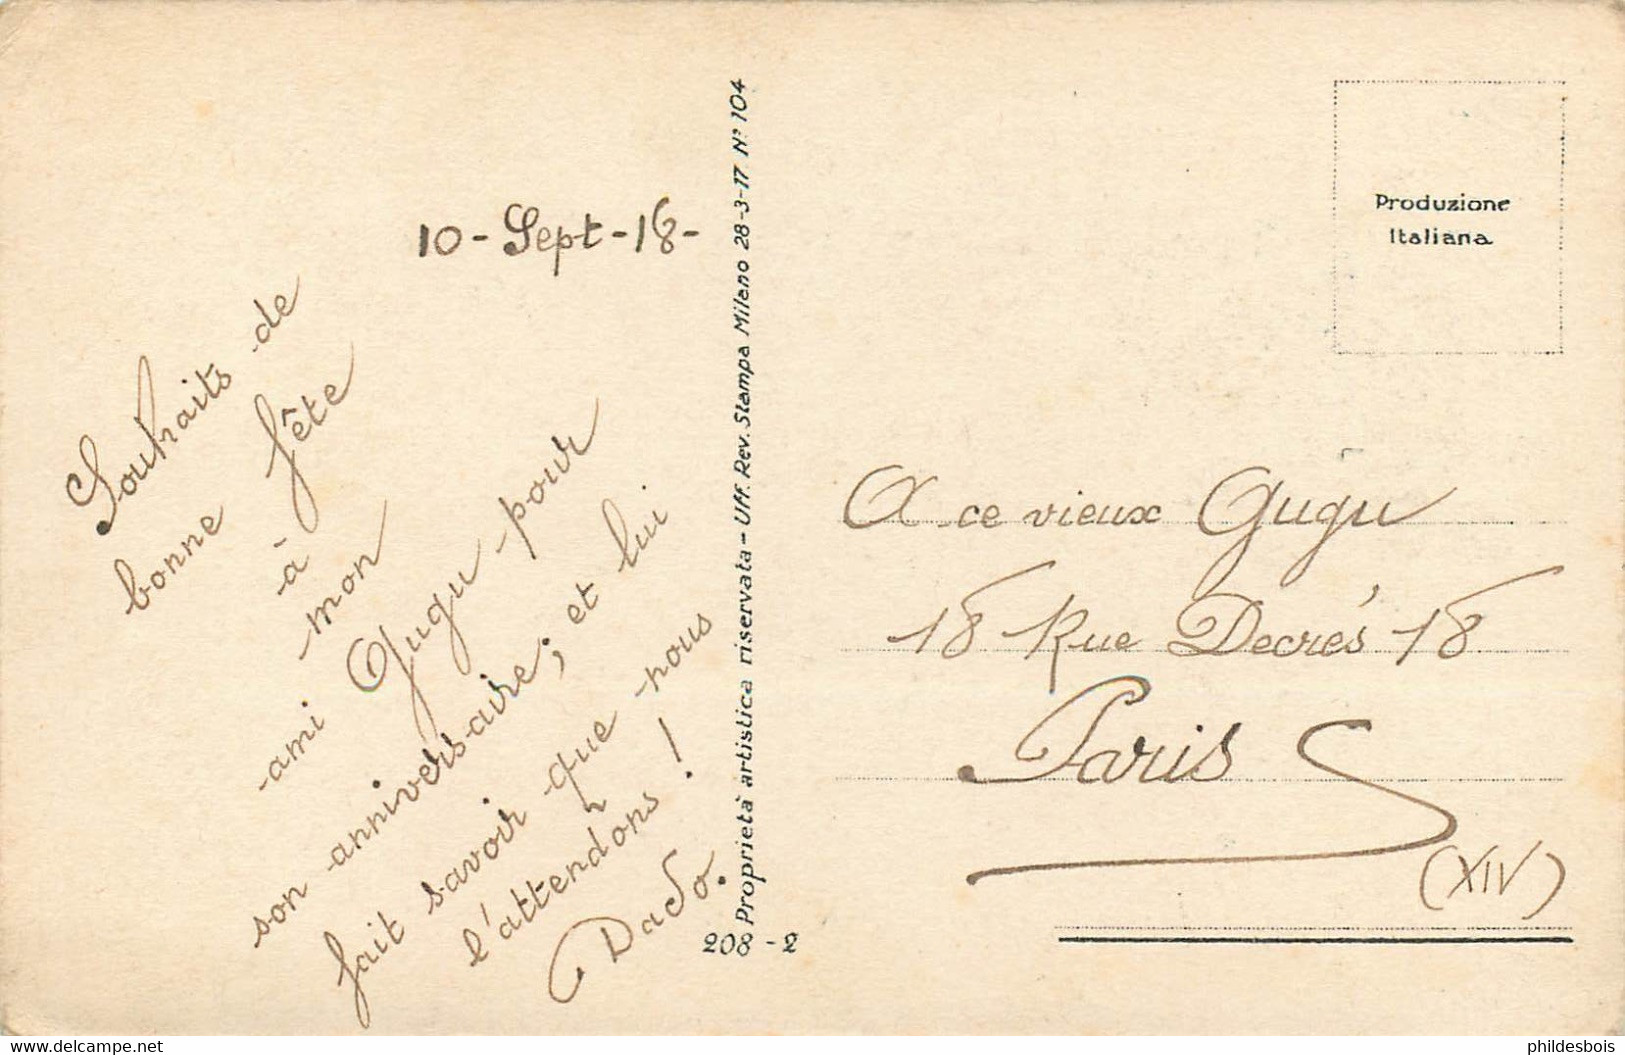 10 - Sept - 18 -
Souhaits de
bonne fête
à
mon
ami Gugu pour
son anniversaire; et lui
fait savoir que nous
l'attendons !
Dado.
Proprietà artistica riservata - Uff. Rev. Stampa Milano 28-3-17 N° 104
208 - 2
Produzione
Italiana
A ce vieux Gugu
18 Rue Decrés 18
Paris
(XIV)
www.delcampe.net
phildesbois